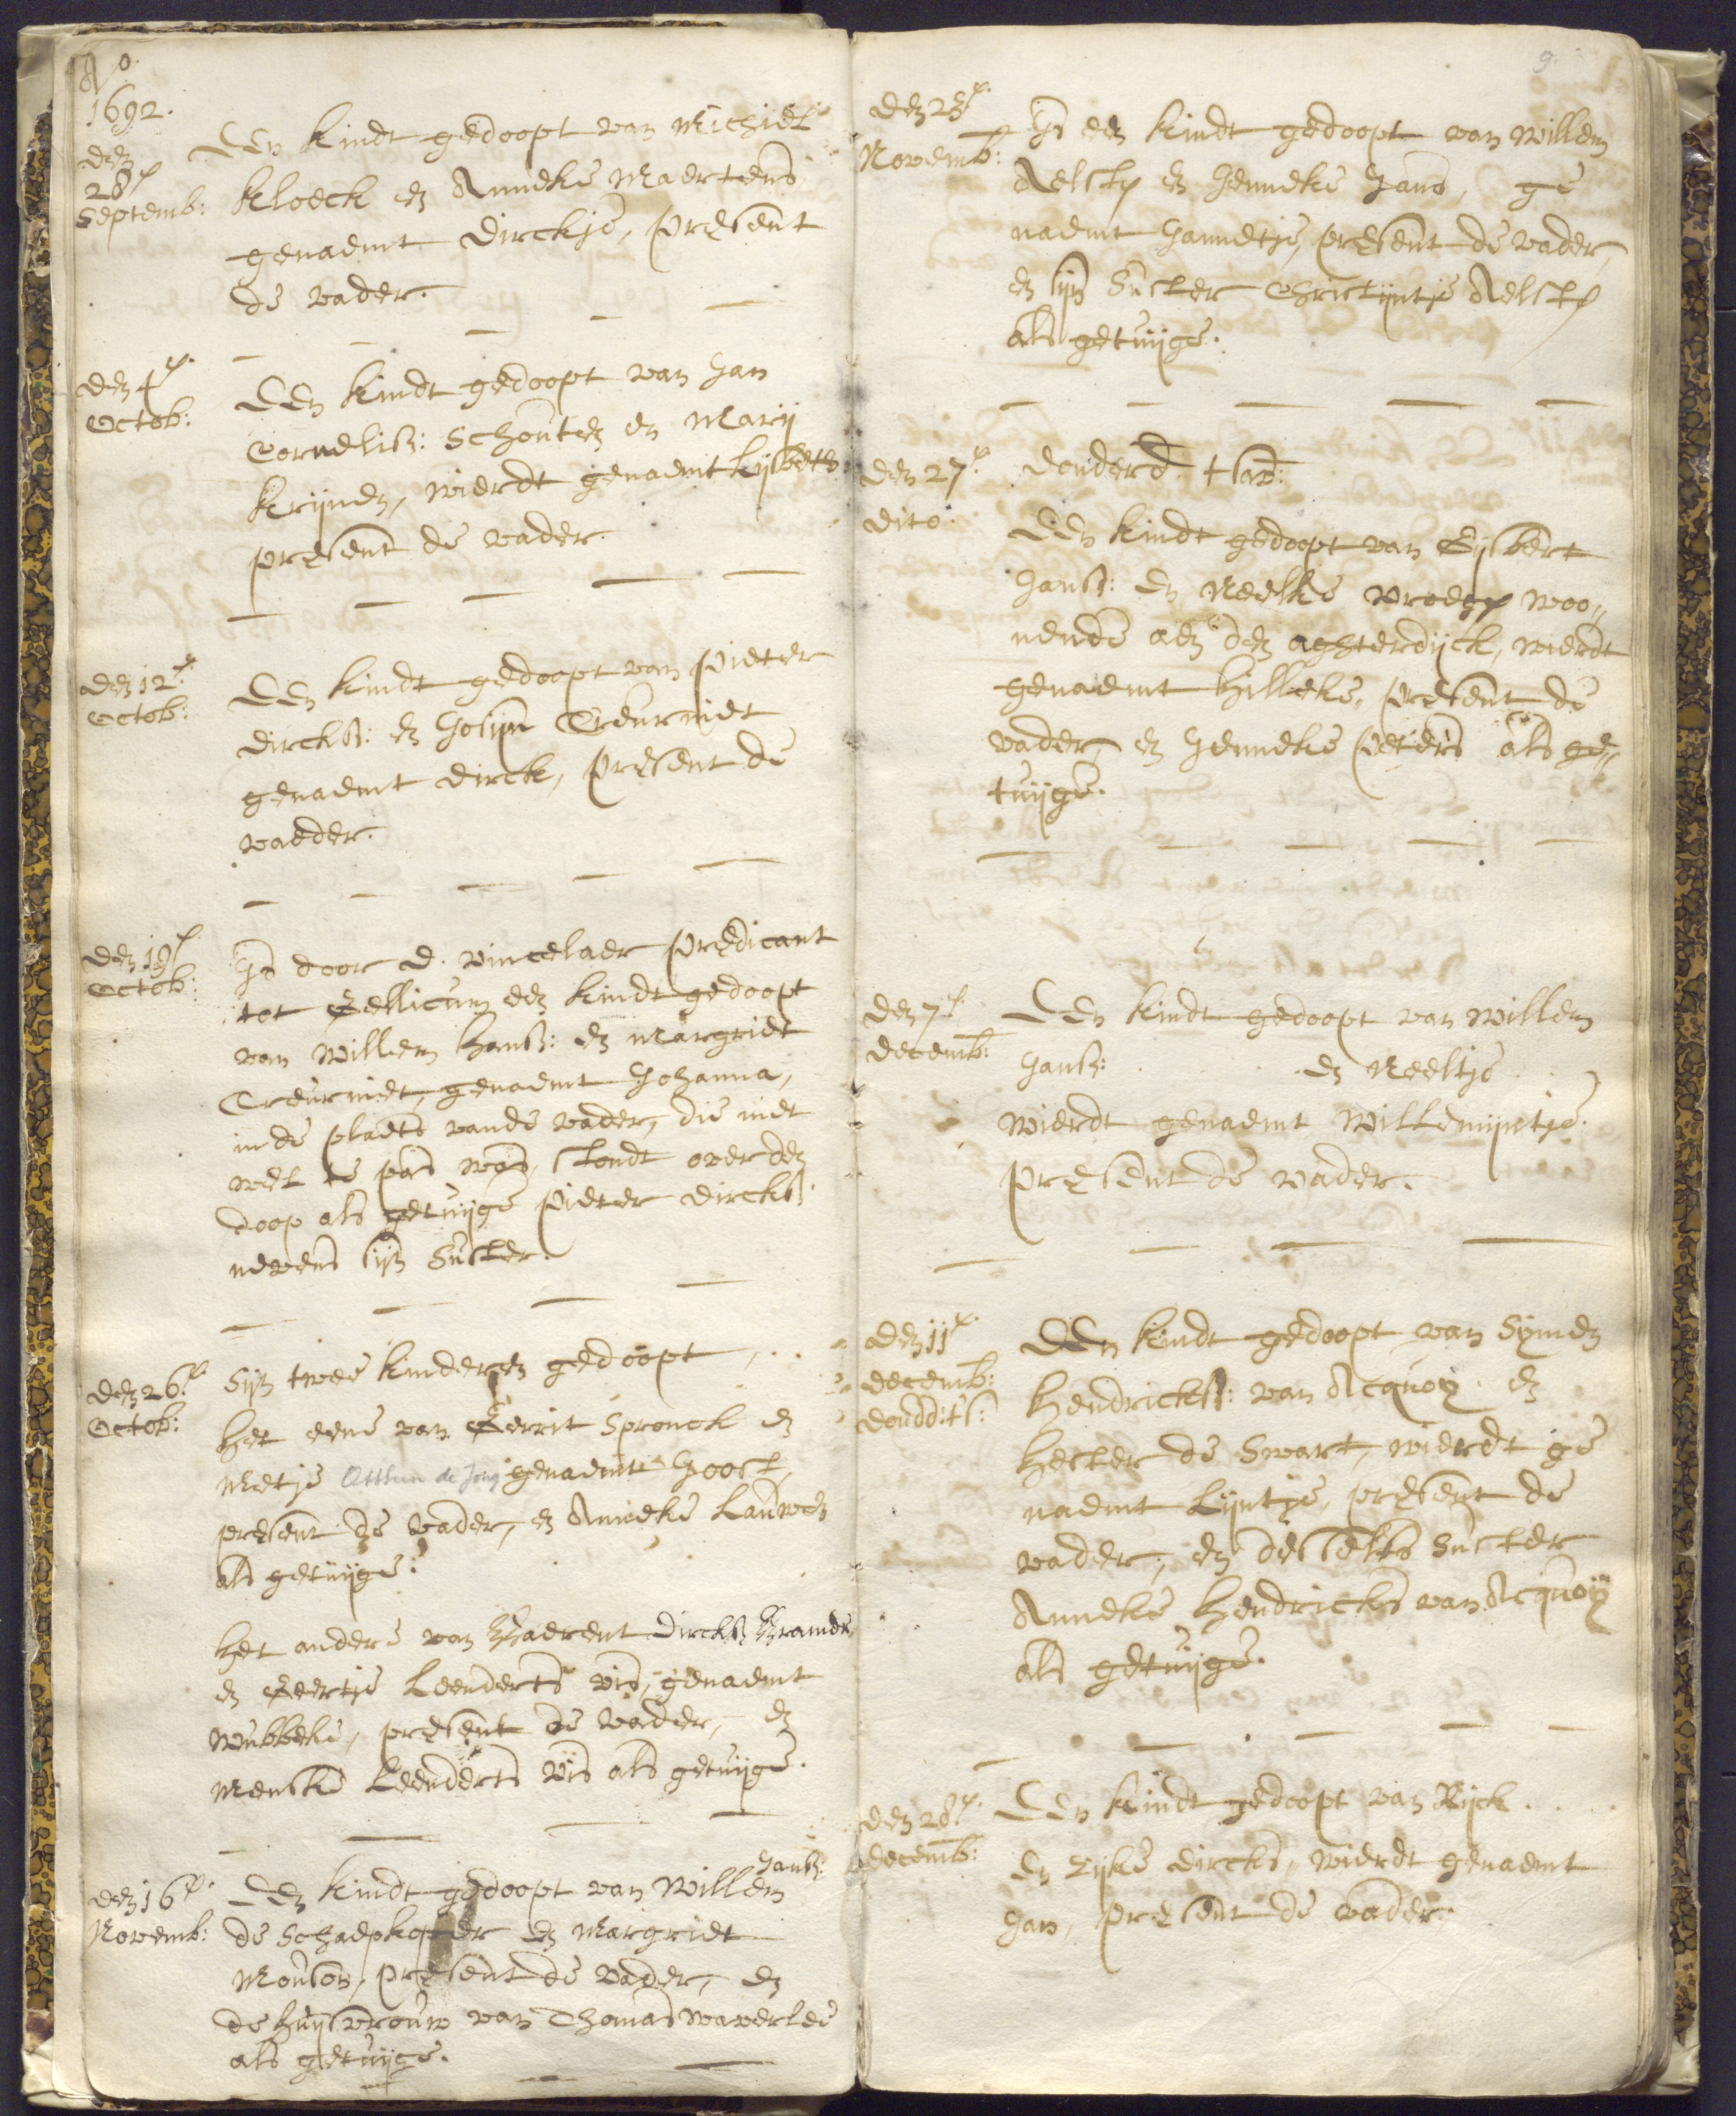 Ao.
1692.
den
28e
Septemb:
Een kindt gedoopt van Michiel
Kloeck en Anneke Maertens
genaemt Dirckje, present
de vader.
den 4e.
Octob:
Een kindt gedoopt van Jan
Cornelisz: Schouten en Marij
Krijnen, wierdt genaemt Lijsbeth
present de vader.
den 12e.
Octob:
Een kindt gedoopt van Pieter
Dircksz: en Josijn Treurniet
genaemt Dirck, present de
vaeder.
den 19e
Octob:
Is door D. Vincelaer Predicant
tot Gellicum een kindt gedoopt
van Willem Hansz: en Margriet
Treurniet, genaemt Johanna,
in de plaets van de vader, die niet
wel te pas was, stondt over den
doop als getuijge Pieter Dircksz:
nevens sijn Suster.
den 26e.
Octob:
Sijn twee kinderen gedoopt,
Het eene van Gerrit Spronck en
Metje Otthen de Jong genaemt Joost,
present de vader, en Anneke Lauwen
als getuijge.
Het andere van Baerent Dircksz
en Geertje Leenderts Vis, genaemt
Wubbeke, present de vader, en
Menske Leenderts Vis als getuijge.
den 16e.
Novemb:
Een kindt gedoopt van Willem Jansz:
de Schaepkoper en Margriet
Mouson, present de vader, en
de huijsvrouw van Thomas Waverlee
als getuijge.
9.
den 23e.
Novemb:
Is een kindt gedoopt van Willem
Aelsten en Jenneke Jans, ge
naemt Jannetje, present de vader,
en sijn Suster Christijntje Aelsten
als getuijge.
den 27e.
dito.
Donderd. tsav:
Een kindt gedoopt van Gijsbert
Jansz: en Neelke Vroegen woo„
nende aen den aghterdijck, wierdt
genaemt Hilleke, present de
vader, en Jenneke Peters als ge„
tuijge.
den 7e.
Decemb:
Een kindt gedoopt van Willem
Jansz: en Neeltje
wierdt genaemt Willemijntje.
present de vader.
den 11e.
Decemb:
Dondd: ts:
Een kindt gedoopt van Symen
Hendricksz: van Acquoy en
Hester de Swart, wierdt ge
naemt Lijntje, present de
vader, en desselfs Suster
Anneke Hendricks van Acquoy
als getuijge.
den 28e.
Decemb:
Een kindt gedoopt van Rijck
en Zijke Dircks, wierdt genaemt
Jan, present de vader.